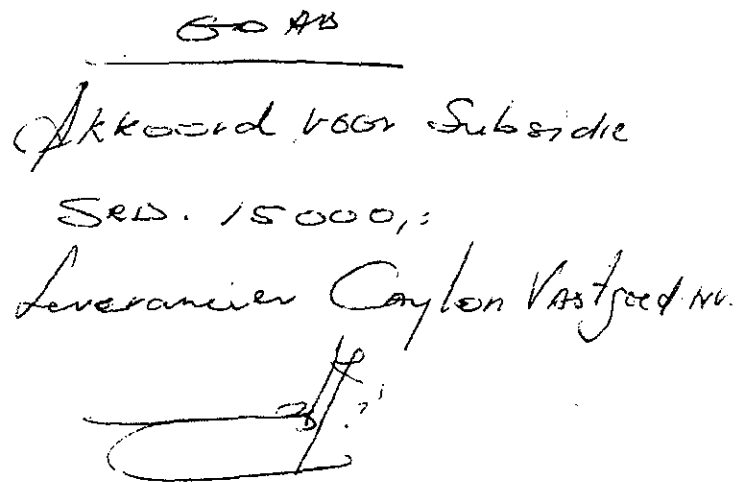 Akkoord voor Subsidie
SRD. 15000,=
Leverancier Caylon Vastgoed NV.